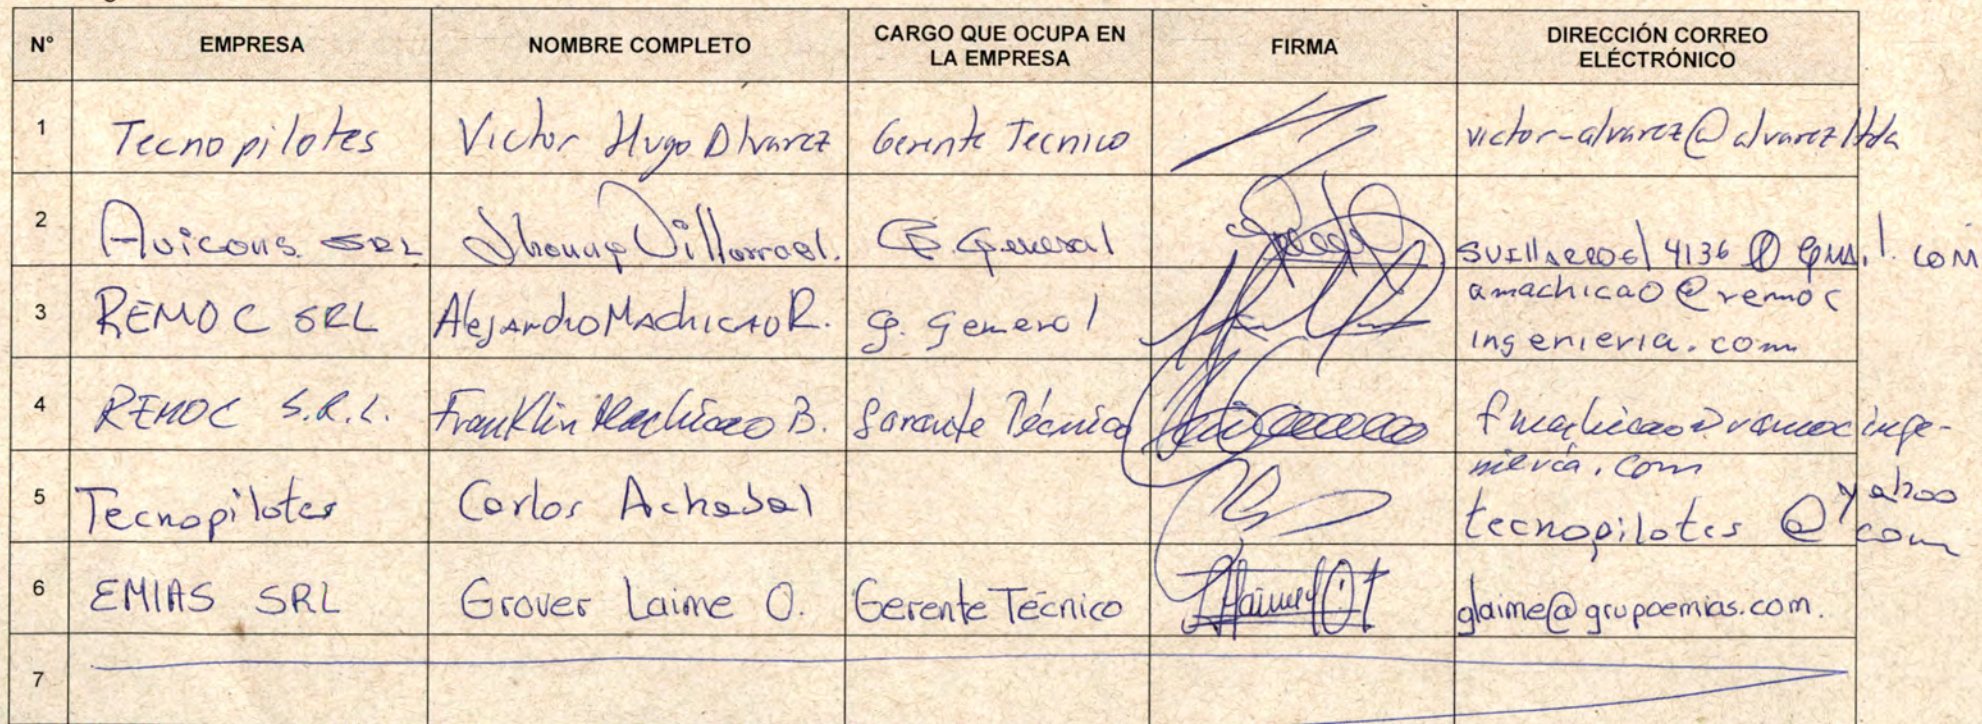 N° EMPRESA NOMBRE COMPLETO CARGO QUE OCUPA EN LA EMPRESA FIRMA DIRECCIÓN CORREO ELÉCTRÓNICO
1 Tecnopilotes Victor Hugo Alvarez Gerente Tecnico victor-alvarez@alvarezltda
2 Avicons SRL Villarroel. G. General svillarroel4136@gmail.com
3 REMOC SRL Alejandro Machicao R. G. General amachicao@remoc
ingenieria.com
4 REMOC S.R.L. Franklin Machicao B. Gerente Técnico fmachicao@remocinge-
nieria.com
5 Tecnopilotes Carlos Achabal tecnopilotes@yahoo
com
6 EMIAS SRL Grover Laime O. Gerente Técnico glaime@grupoemias.com.
7